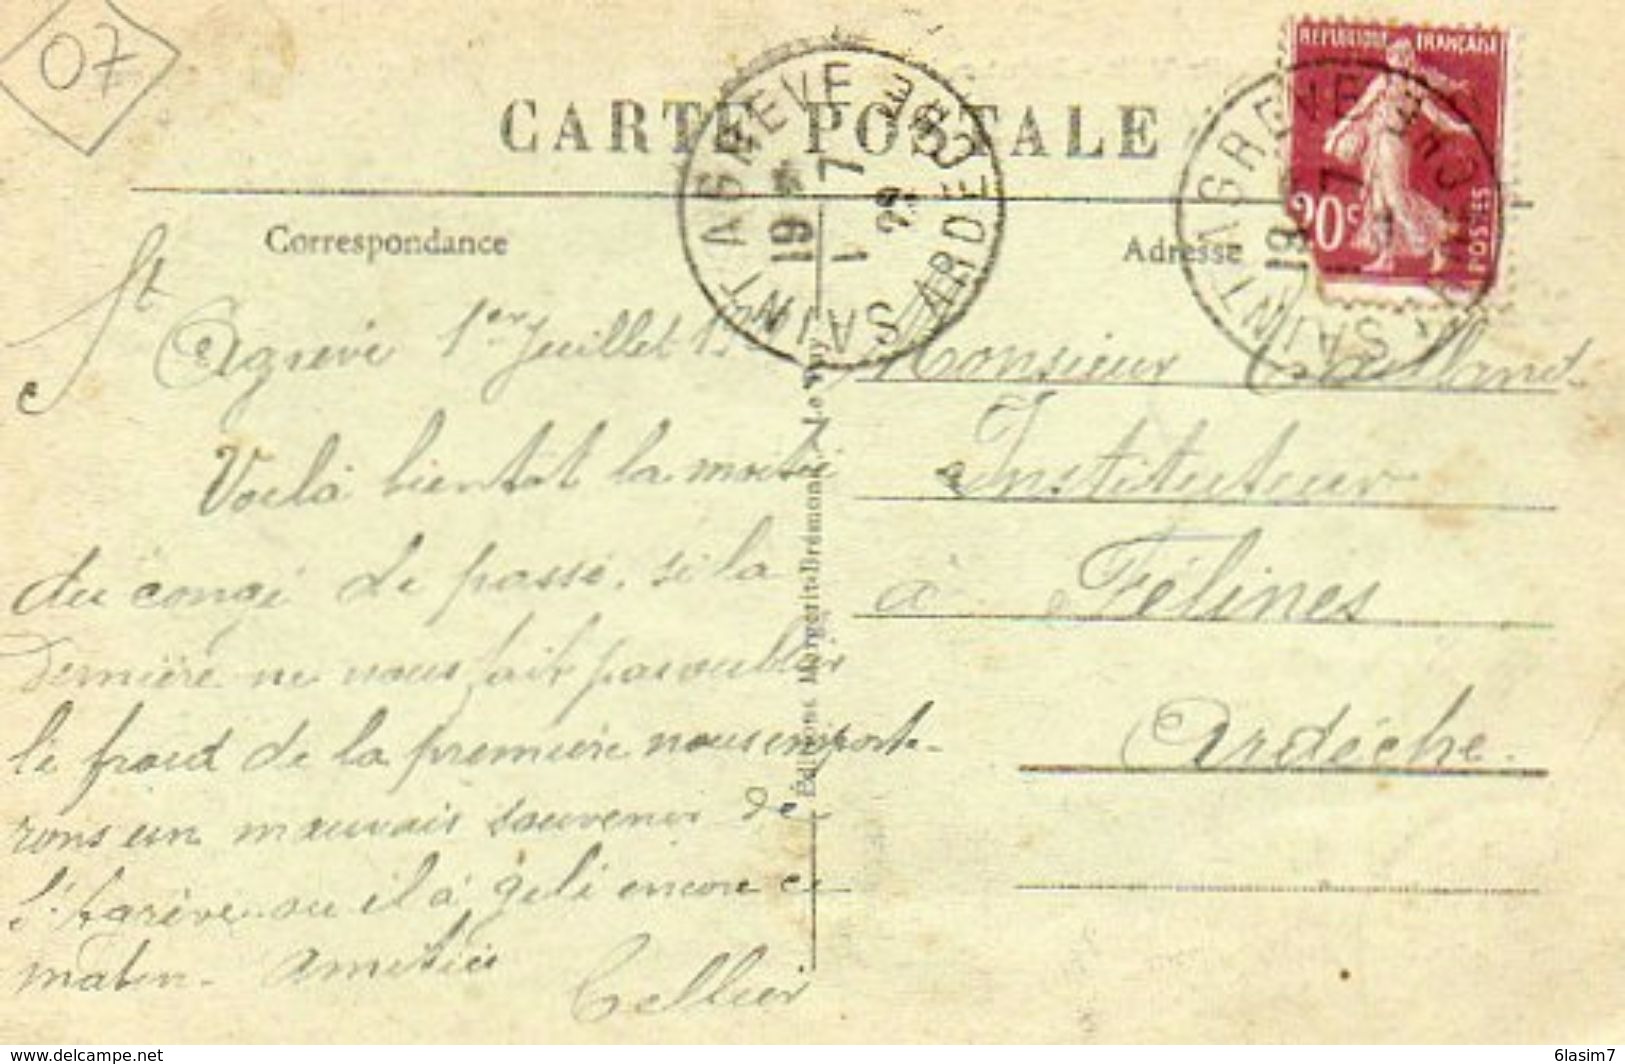 07
CARTE POSTALE
REPUBLIQUE FRANÇAISE
20c
POSTES
SAINT AGREVE
ARDECHE
19 *
1 7
SAINT AGREVE
ARDECHE
19
Correspondance
Adresse
St Agrève 1er Juillet
Voilà bientot la moitié
du congé de passé. si la
dernière ne nous fait pas oublier
le froid de la première nous emporte-
rons un mauvais souvenir de
St Agrève ou il à gelé encore ce
matin. Amitiés
Cellier
Éditions Margerit-Brémond, Le Puy
Monsieur
Instituteur
à Félines
Ardèche.
www.delcampe.net
6lasim7